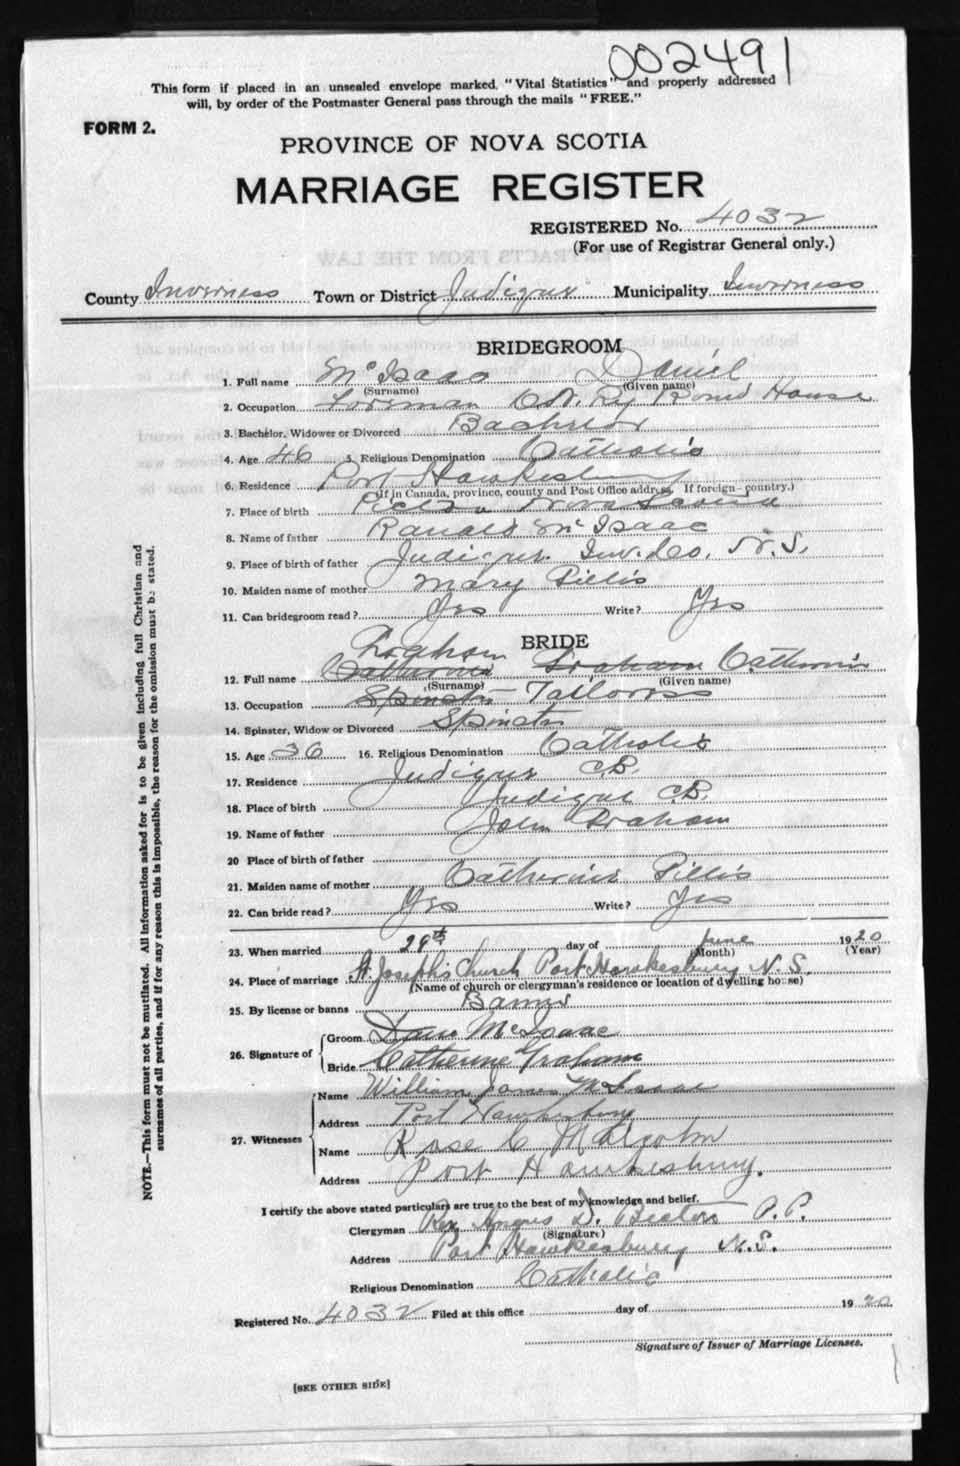 002491
This form if placed in an unsealed envelope marked, "Vital Statistics" and properly addressed
will, by order of the Postmaster General pass through the mails "FREE."
FORM 2.
PROVINCE OF NOVA SCOTIA
MARRIAGE REGISTER
REGISTERED No. 4032
(For use of Registrar General only.)
County Inverness Town or District Judique Municipality Inverness
BRIDEGROOM
1. Full name McIsaac Daniel
(Surname) (Given name)
2. Occupation Foreman C.N. Ry Round House
3. Bachelor, Widower or Divorced Bachelor
4. Age 46 5. Religious Denomination Catholic
6. Residence Port Hawkesbury
(If in Canada, province, county and Post Office address. If foreign—country.)
7. Place of birth Pictou Nova Scotia
8. Name of father Ranald McIsaac
9. Place of birth of father Judique Inv. Co. N.S.
10. Maiden name of mother Mary Gillis
11. Can bridegroom read? Yes Write? Yes
BRIDE
Graham
12. Full name Catherine Graham Catherine
(Surname) (Given name)
13. Occupation Spinster Tailoress
14. Spinster, Widow or Divorced Spinster
15. Age 36 16. Religious Denomination Catholic
17. Residence Judique C.B.
18. Place of birth Judique C.B.
19. Name of father John Graham
20 Place of birth of father
21. Maiden name of mother Catherine Gillis
22. Can bride read? Yes Write? Yes
23. When married 29th day of June 1920
(Month) (Year)
24. Place of marriage St. Joseph's Church Port Hawkesbury N.S.
(Name of church or clergyman's residence or location of dwelling house)
25. By license or banns Banns
26. Signature of Groom Dan McIsaac
Bride Catherine Graham
27. Witnesses Name William James McIsaac
Address Port Hawkesbury
Name Rose C Malcolm
Address Port Hawkesbury.
I certify the above stated particulars are true to the best of my knowledge and belief.
Clergyman Rev Angus D. Beaton P.P.
(Signature)
Address Port Hawkesbury N.S.
Religious Denomination Catholic
Registered No. 4032 Filed at this office day of 1920
Signature of Issuer of Marriage Licenses.
[SEE OTHER SIDE]
NOTE.—This form must not be mutilated. All information asked for is to be given including full Christian and
surnames of all parties, and if for any reason this is impossible, the reason for the omission must be stated.